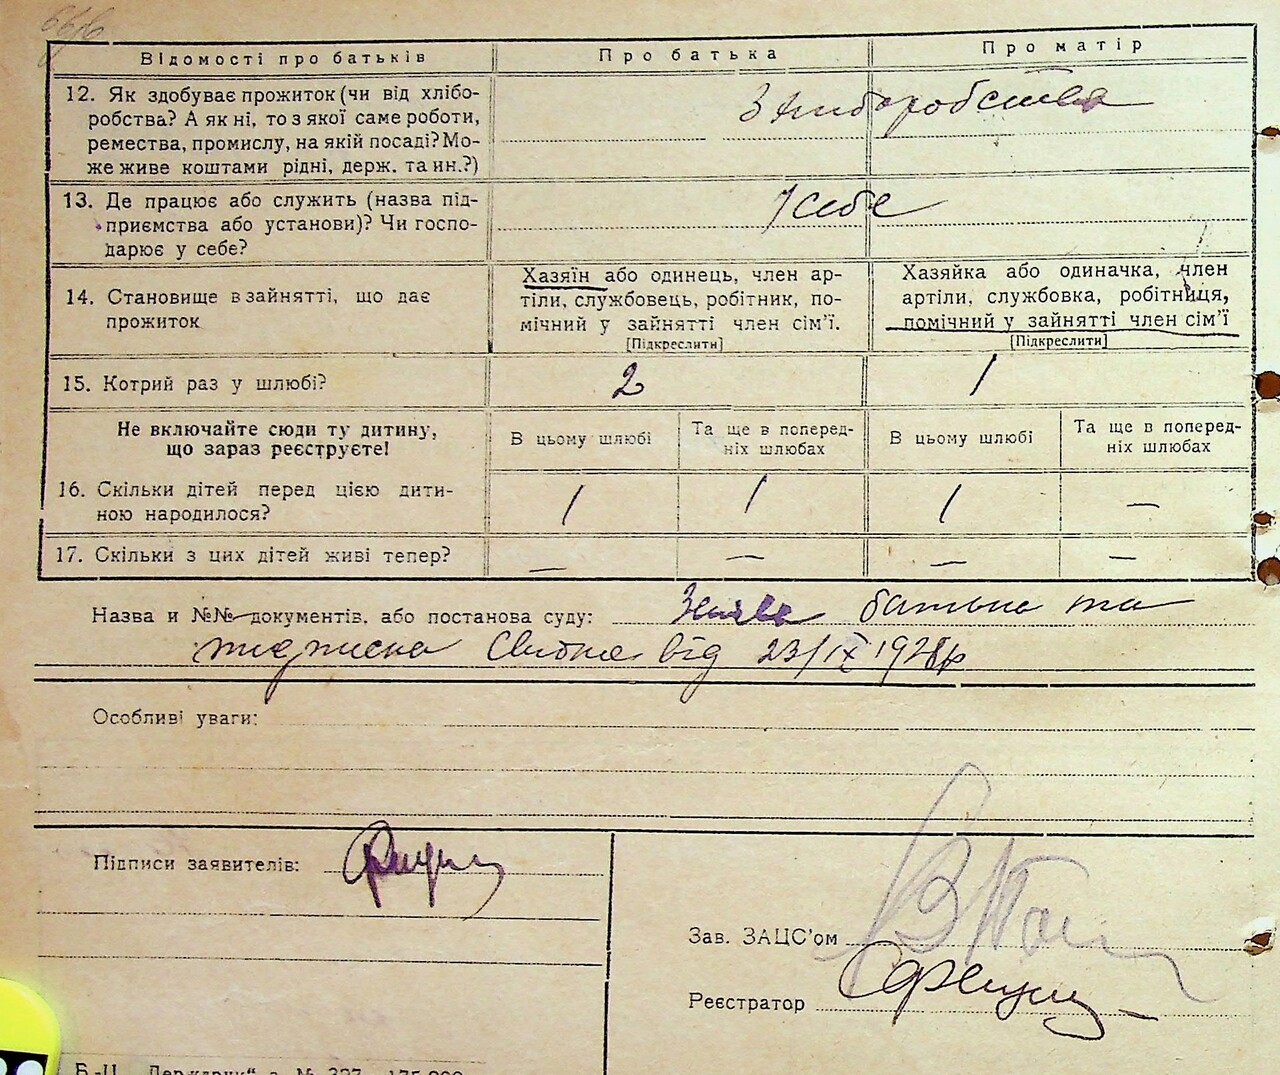 Відомості про батьків
Про батька
Про матір
12. Як здобуває прожиток (чи від хлібо-
робства? А як ні, то з якої саме роботи,
ремества, промислу, на якій посаді? Мо-
же живе коштами рідні, держ. та ин.?)
З хліборобства
13. Де працює або служить (назва під-
приємства або установи)? Чи госпо-
дарює у себе?
У себе
14. Становище в зайнятті, що дає
прожиток
Хазяїн або одинець, член ар-
тіли, службовець, робітник, по-
мічний у зайнятті член сім'ї.
[Підкреслити]
Хазяйка або одиначка, член
артіли, службовка, робітниця,
помічний у зайнятті член сім'ї
[Підкреслити]
15. Котрий раз у шлюбі?
2
1
Не включайте сюди ту дитину,
що зараз реєструєте!
В цьому шлюбі
Та ще в поперед-
ніх шлюбах
В цьому шлюбі
Та ще в поперед-
ніх шлюбах
16. Скільки дітей перед цією дити-
ною народилося?
1
1
1
—
17. Скільки з цих дітей живі тепер?
—
—
—
—
Назва и №№ документів, або постанова суду: Заява батька та
підписка від 23/IX 1928р
Особливі уваги:
Підписи заявителів:
Зав. ЗАЦС'ом
Реєстратор
Держдрук" з. № 327